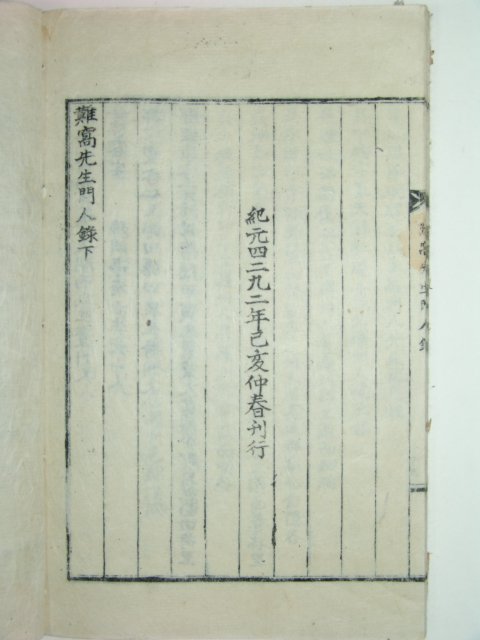 紀元四二九二年己亥仲春刊行
難窩先生門人錄下